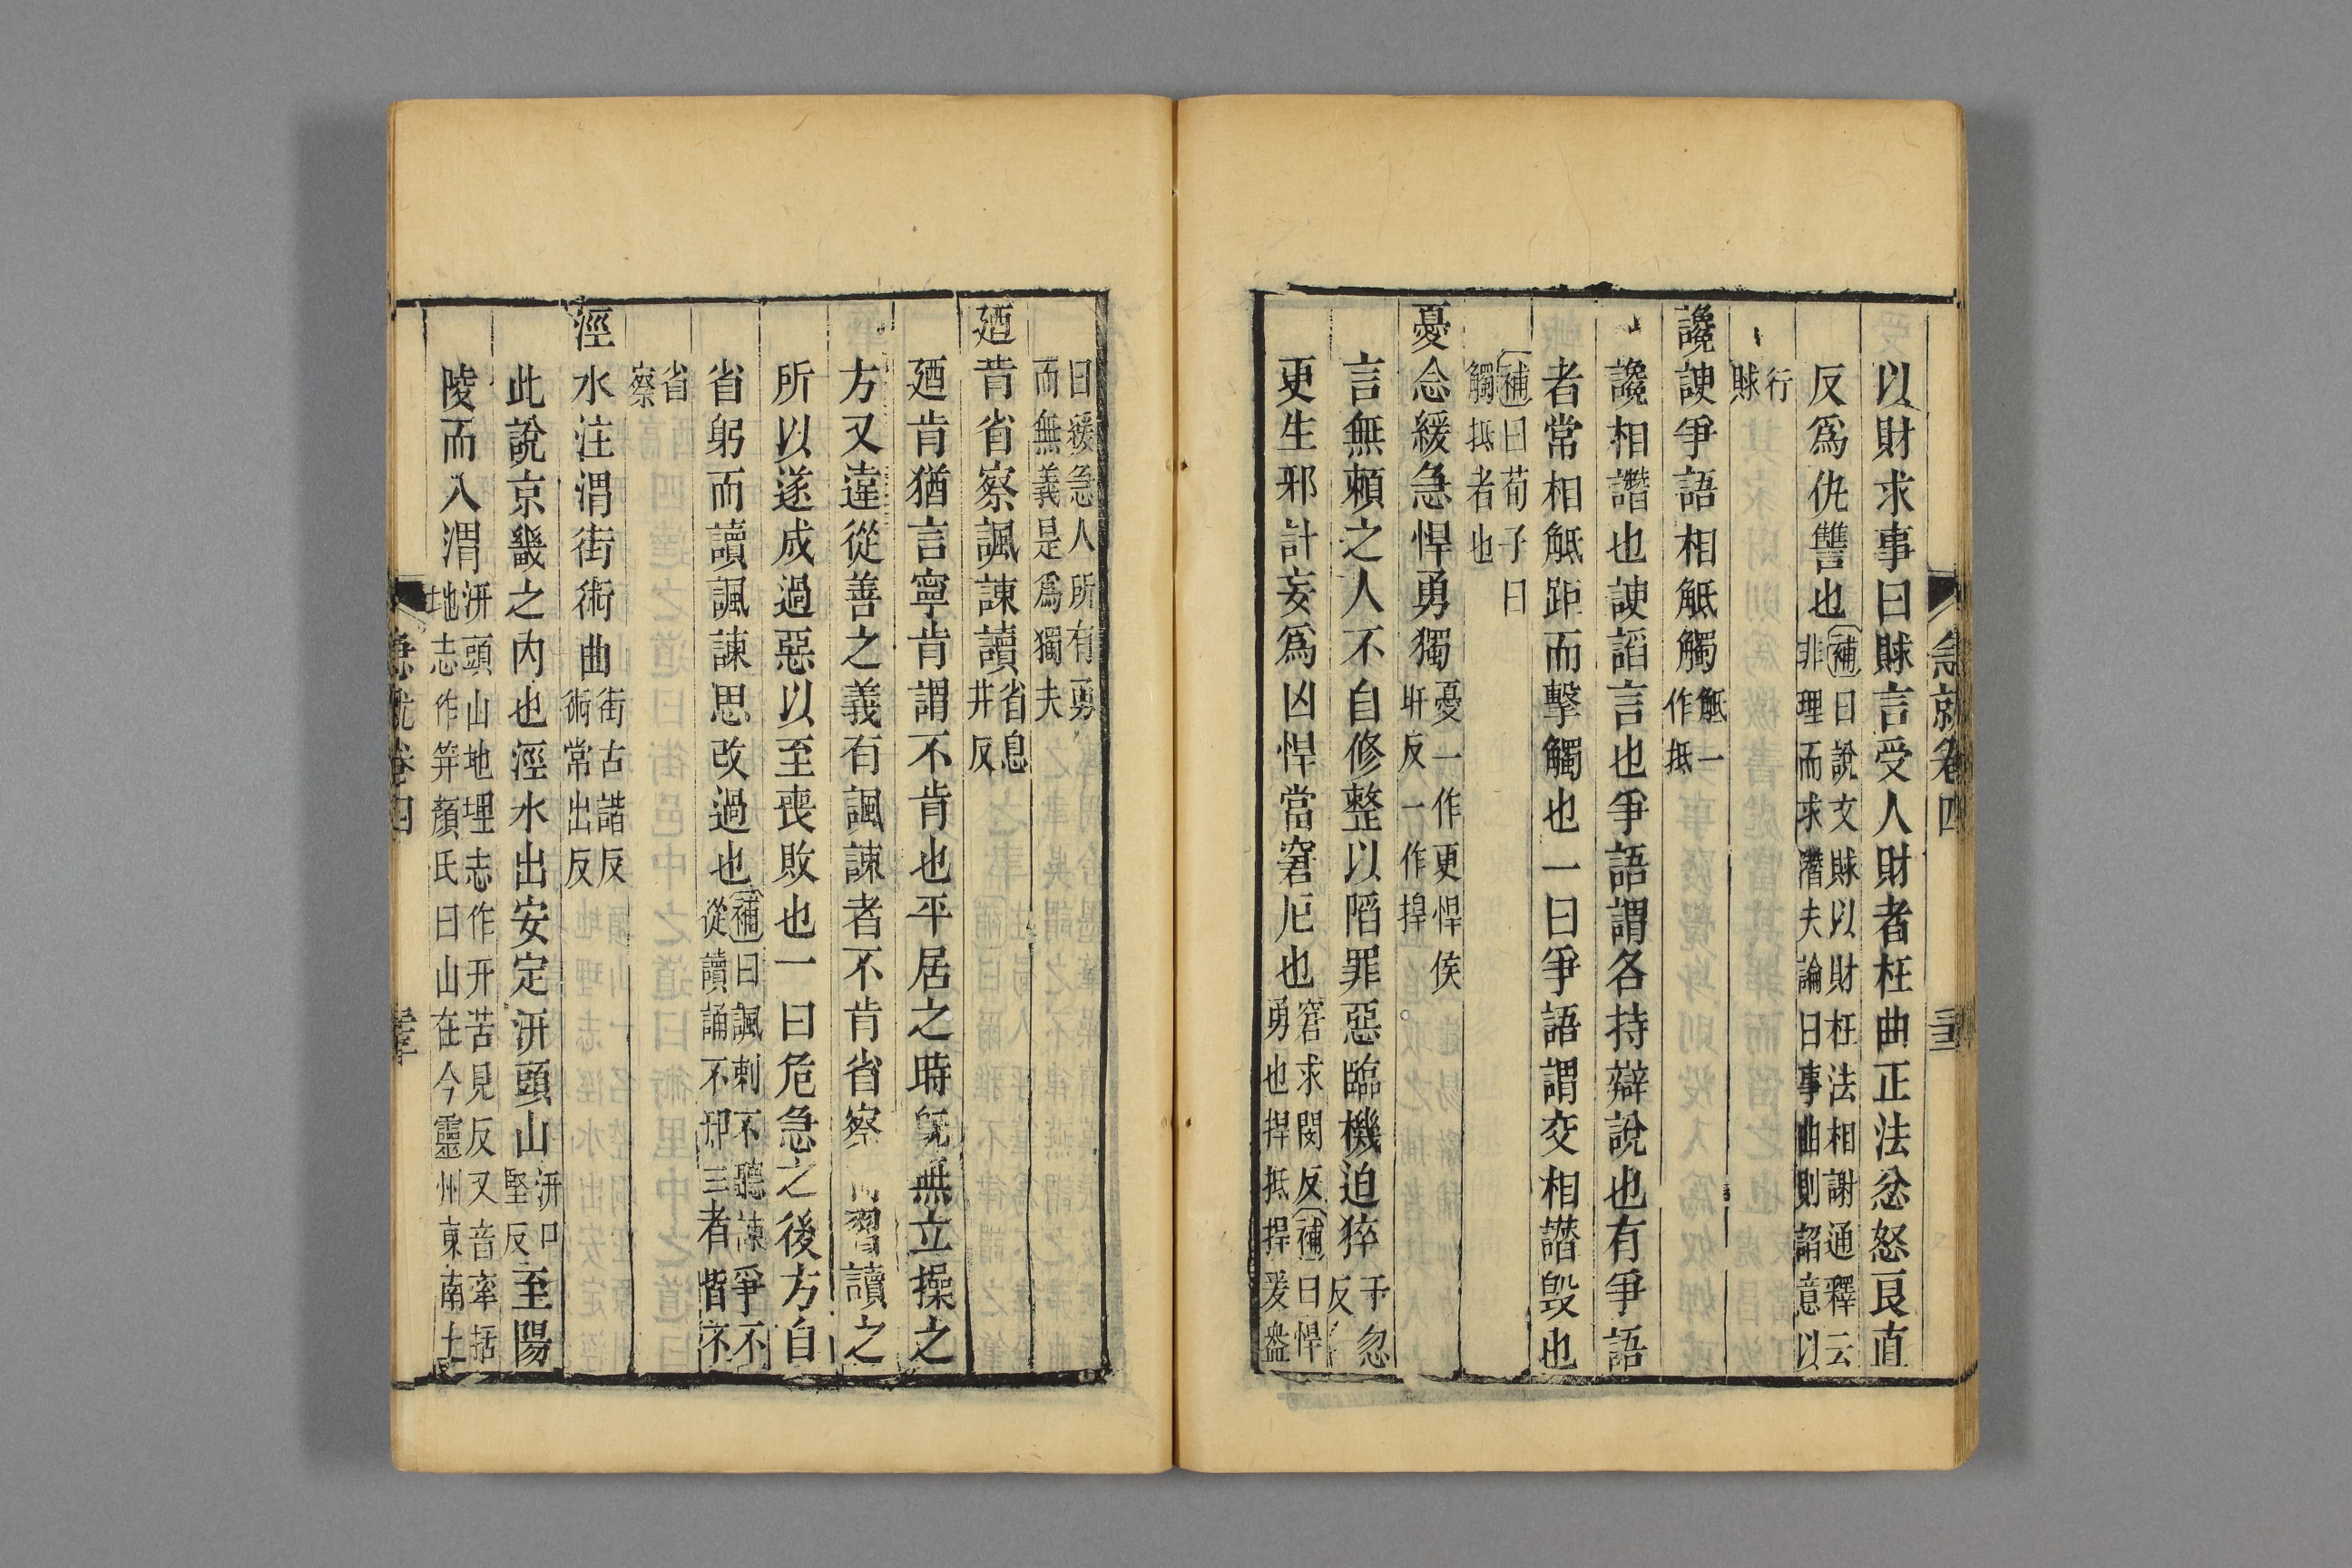 急就卷四
以財求事曰賕言受人財者枉曲正法忿怒良直
反爲仇讐也補曰說文賕以財枉法相謝通釋云
非理而求潛夫論曰事曲則諂意以
行
賕
讒諛爭語相觝觸觝一
作抵
讒相譖也諛諂言也爭語謂各持辯說也有爭語
者常相觝距而擊觸也一曰爭語謂交相譖毀也
補曰荀子曰
觸抵者也
憂念緩急悍勇獨憂一作更悍侯
旰反一作捍
言無賴之人不自修整以陷罪惡臨機迫猝千忽
反
更生邪計妄爲凶悍當窘厄也窘求閔反補曰悍
勇也捍抵捍爰盎
曰緩急人所有勇
而無義是爲獨夫
廼肯省察諷諫讀省息
井反
廼肯猶言寧肯謂不肯也平居之時旣無立操之
方又違從善之義有諷諫者不肯省察 習讀之
所以遂成過惡以至喪敗也一曰危急之後方自
省躬而讀諷諫思改過也補曰諷刺不聽諫爭不
從讀誦不卹三者皆不
省
察
涇水注渭街術曲街古諧反
術常出反
此說京畿之内也涇水出安定汧頭山汧口
堅反至陽
陵而入渭汧頭山地理志作幵苦見反又音牽括
地志作笄顏氏曰山在今靈州東南土
急就卷四